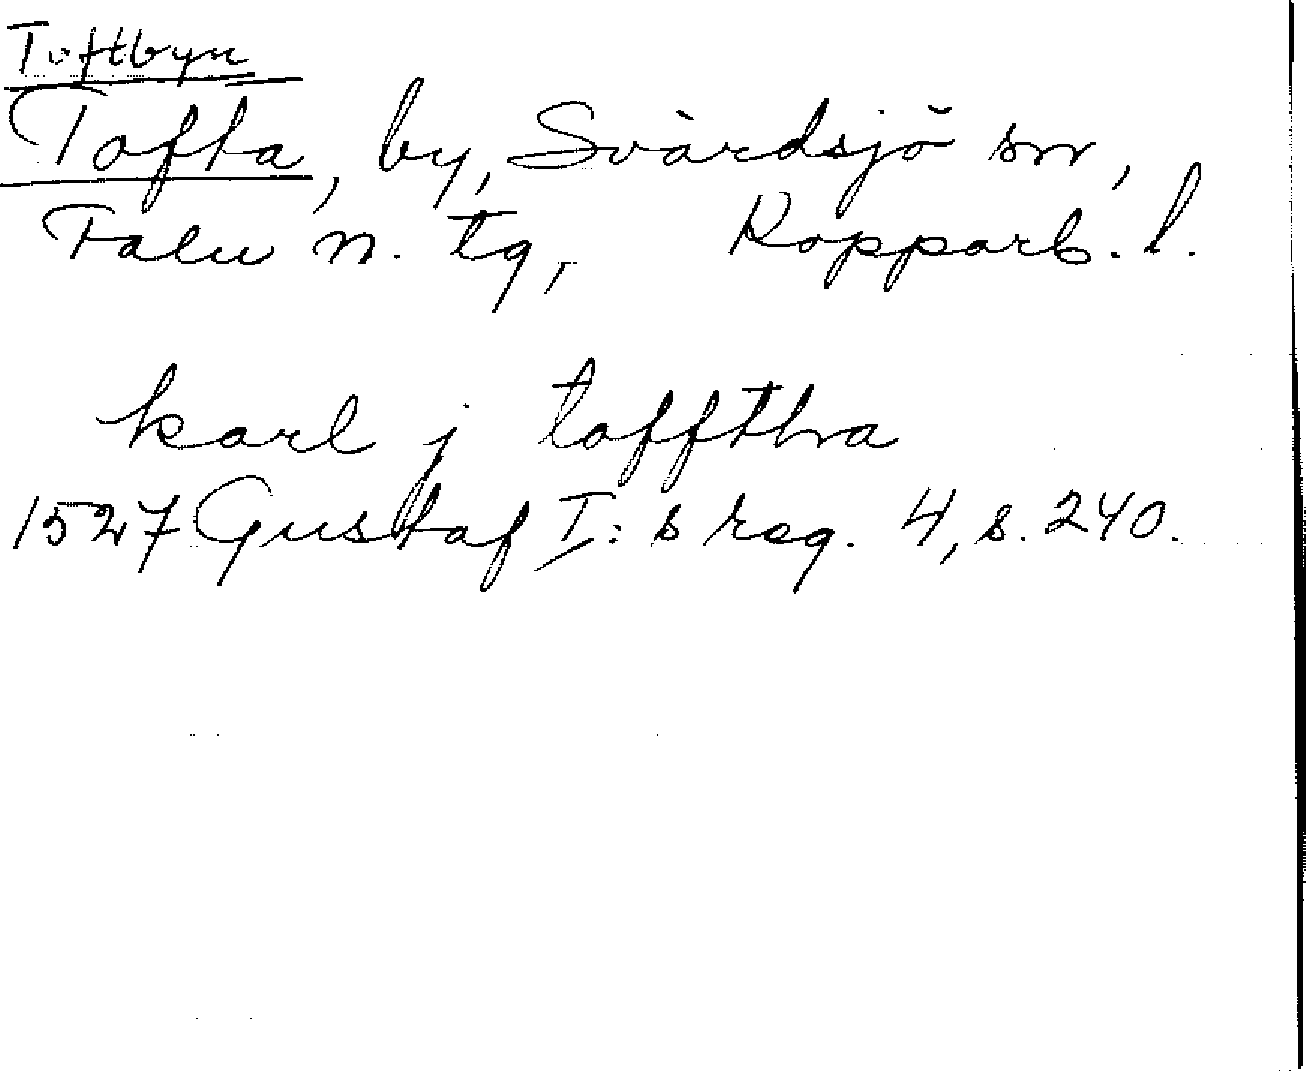 Toftbyn
Tofta, by, Svärdsjö sn,
Falu n. tg, Kopparb. l.
karl j tofftha
1527 Gustaf I:s reg. 4, s. 240.